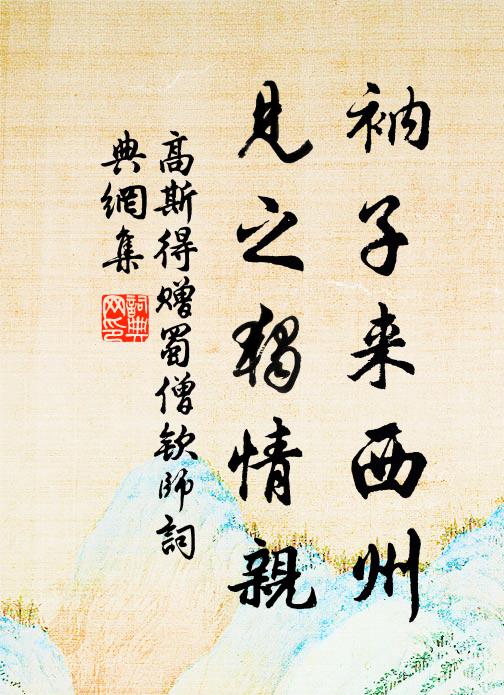 衲子来西州
見之獨情親
高斯得贈蜀僧欽師詞
典網集
詞典網印